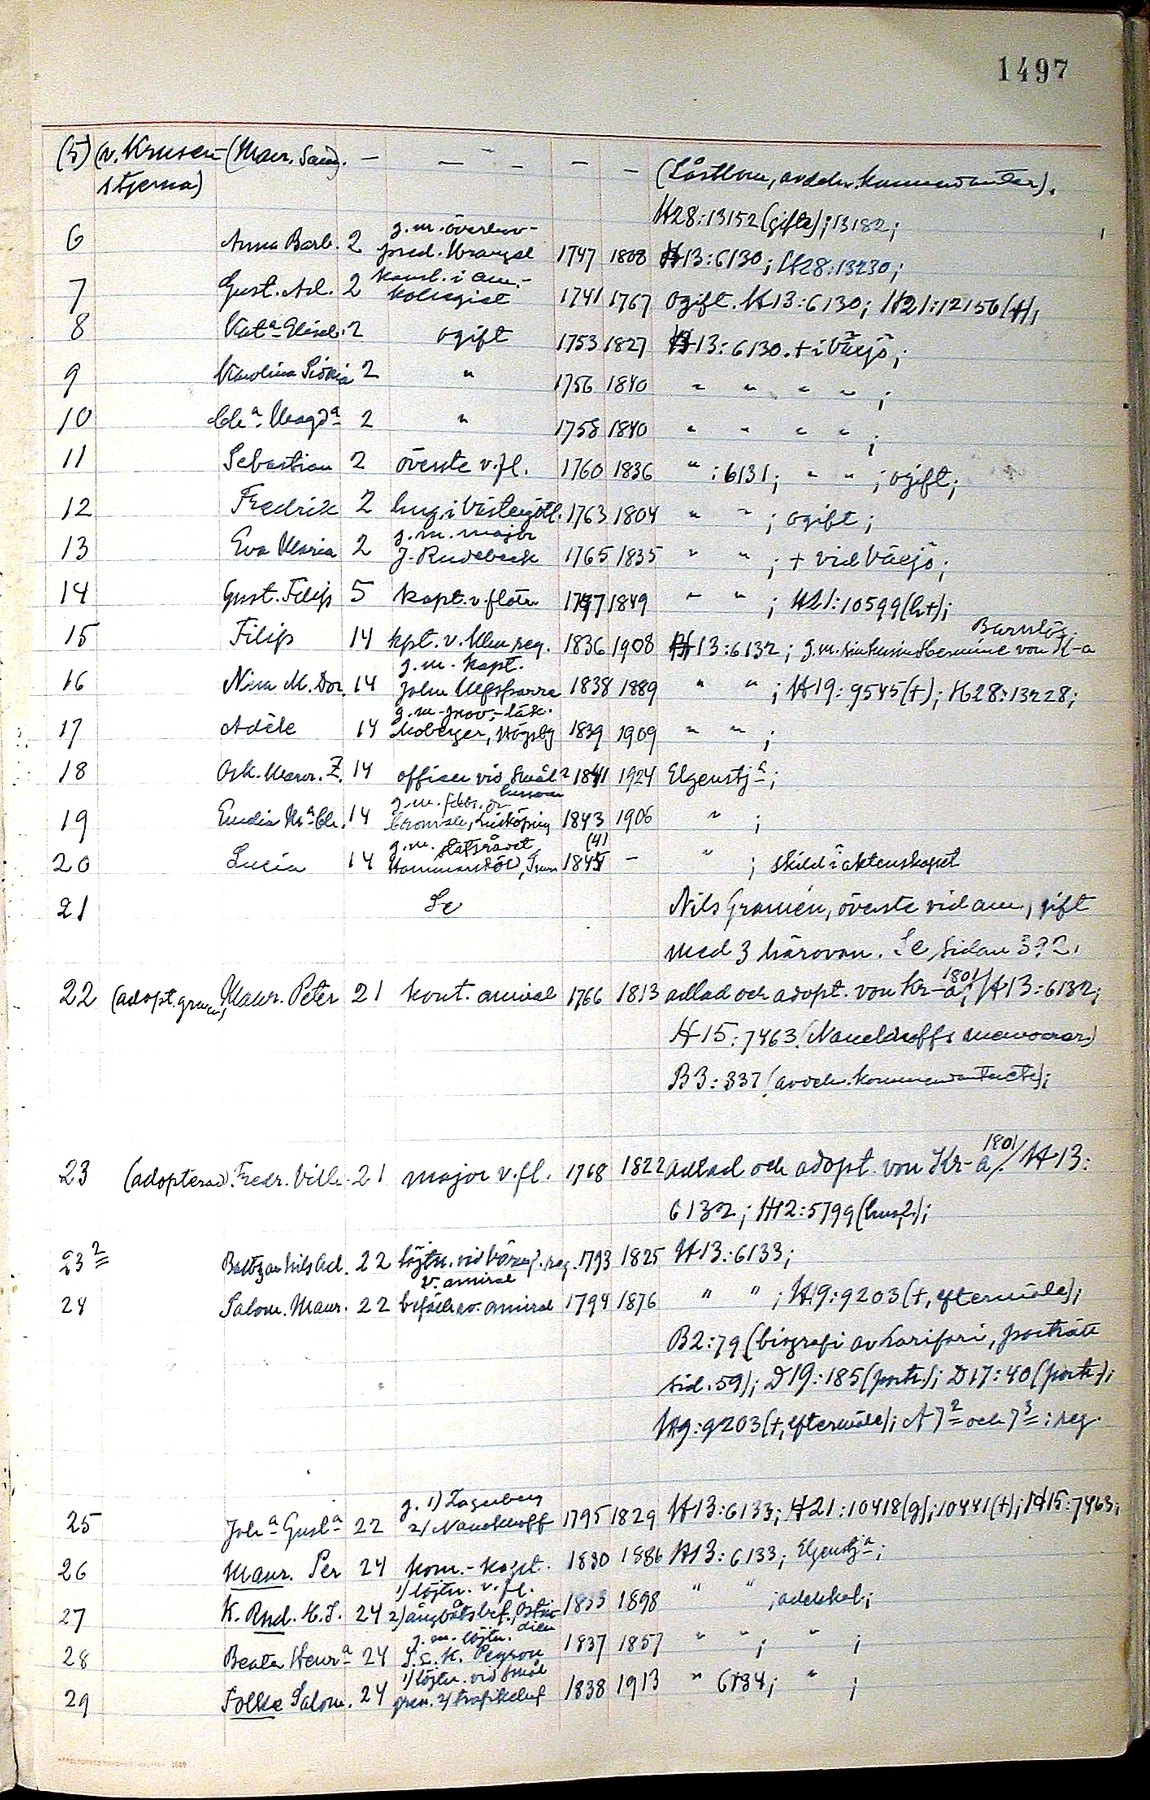 1497
(5) (v. Krusen- (Maur. Sam). — — — — — — (Låstbom, avdeln. kommendanter).
stjerna)
H28:13152 (gifte); 13182;
g. m. överhov-
6 Anna Barb. 2 pred. Wrangel 1747 1808 H13:6130; H28:13230;
7 Gust. Ad. 2 kansl. i am.- kollegiet 1741 1767 ogift. H13:6130; H21:12156(+);
8 Kat:a Elisab. 2 ogift 1753 1827 H13:6130. + i Växjö;
9 Karolina Sidonia 2 " 1756 1840 " " " " ;
10 Magd:a 2 " 1758 1840 " " " " ;
11 Sebastian 2 överste v. fl. 1760 1836 " :6131; " " ; ogift;
12 Fredrik 2 i Västergötl. 1763 1804 " " ; ogift;
g. m. major
13 Eva Maria 2 J. Rudebeck 1765 1835 " " ; + vid Växjö;
14 Gust. Filip 5 kapt. v. flottan 1797 1849 " " ; H21:10599 (h+);
Barnlös;
15 Filip 14 kpt. v. reg. 1836 1908 H13:6132; g. m. sin kusin Hermine von K-a
g. m. kapt.
16 Nina M. Dor. 14 John Ulfsparre 1838 1889 " " ; H19:9545(+); H28:13228;
g. m. prov.-läk.
17 Adèle 14 Moberger, Högsby 1839 1909 " " ;
18 Osk. Maur. Z. 14 officer vid Smål:s 1841 1924 Elgenstj:a;
husarer
19 Emelia M:a 14 Linköping 1843 1906 " ;
g. m. statsrådet (4)
20 Lucia 14 Hammarsköld, 1845 — " ; skild i äktenskapet
21 Se Nils Gramén, överste vid am., gift
med 3 härovan. Se sidan 3?2.
22 (adopt. gren) Maur. Peter 21 kont. amiral 1766 1813 adlad och adopt. von Kr-a 1801; H13:6132;
H15:7463 (Nauckhoffs memoarer)
B3:337 (avdeln. kommendanter);
23 (adopterad). Fredr. Vilh. 21 major v. fl. 1768 1822 adlad och adopt. von Kr-a 1801/. H13:
6132; H12:5799 (hus?);
23² Baltzar Nils Ad. 22 löjtn. vid reg. 1793 1825 H13:6133;
v. amiral
24 Salom. Maur. 22 befäls av. amiral 1794 1876 " " ; H9:9203 (+, eftermäle);
B2:79 (biografi av Larifari, porträtt
sid. 59); D19:185 (portr.); D17:40 (portr.);
H9:9203 (+, eftermäle); A7² och 7³: reg.
g. 1) Lagerberg
25 Joh:a Gust:a 22 2) Nauckhoff 1795 1829 H13:6133; H21:10418 (g); 10441 (+); H15:7463;
26 Maur. Per 24 kom.-kapt. 1830 1886 H13:6133; Elgenstj:a;
1) löjtn. v. fl.
27 K. Rud. H. S. 24 2) ångbåtsbef., Ostin- 1833 1898 " " ; adelskal.;
dien
g. m. löjtn.
28 Beata Henr:a 24 Peyron 1837 1857 " " ; " ;
1) löjtn. vid Smål
29 Folke Salom. 24 gren. 2) trafikchef 1838 1913 " 6134; " ;